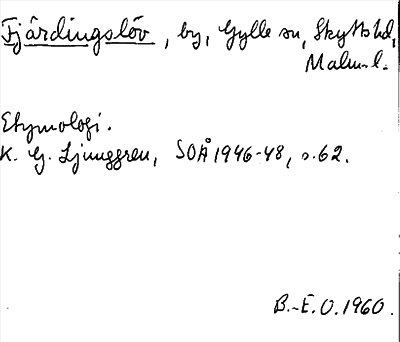 Fjärdingslöv, by, Gylle sn, Skytts hd,
Malm. l.
Etymologi.
K. G. Ljunggren, SOÅ 1946-48, s. 62.
B.-E. O. 1960.